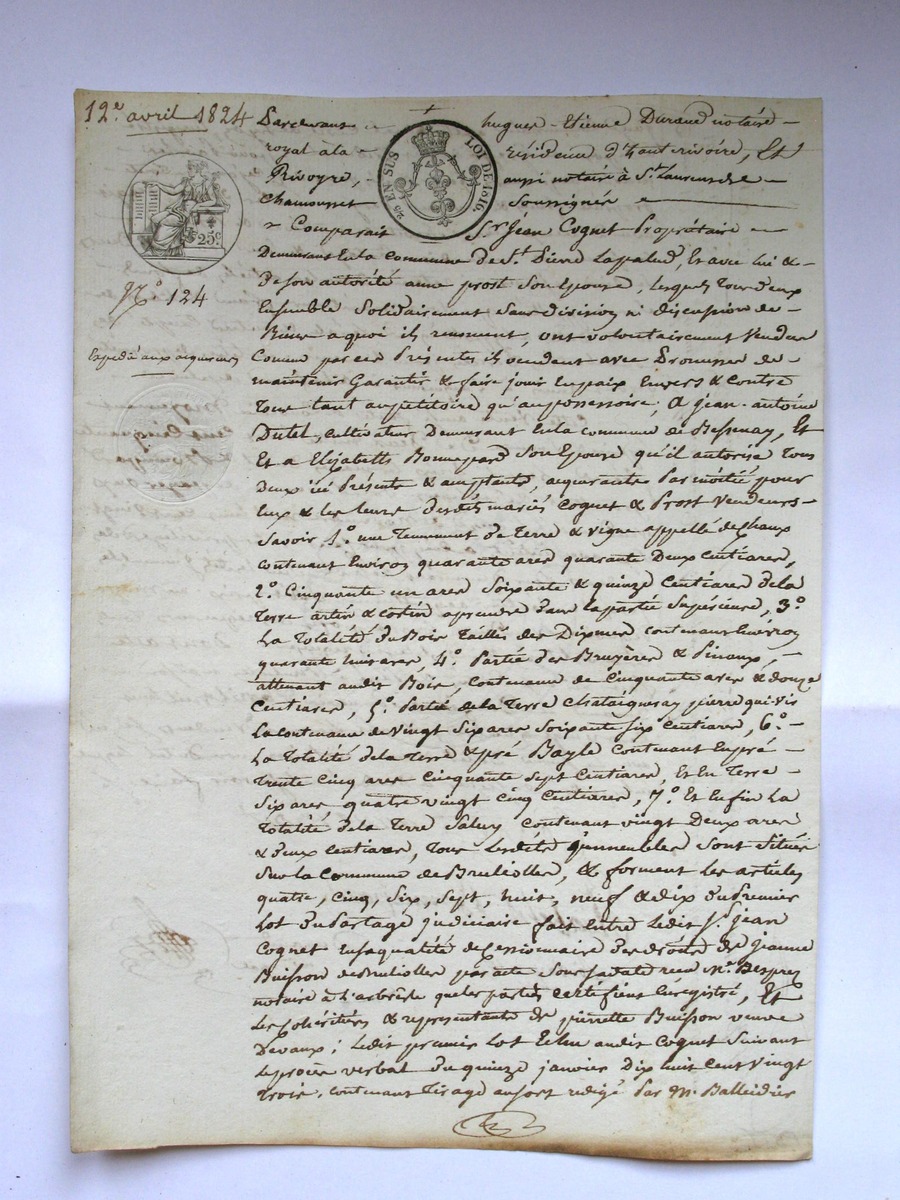 12.e avril 1824
Pardevant hugues-Etienne Durand notaire
royal à la résidence d'hauterivoire, Et
Rivoyre, aussi notaire à St. Laurent de
Chamousset Soussignés
25 EN SUS LOI DE 1816.
25c
Comparait Sr. Jéan Coquet Propriétaire
Demeurant En la commune de St. Pierre Lapalud, Et avec lui &
De son autorité anne prost Son Epouse, lesquels Tous deux
No. 124
Ensemble Solidairement Sans division ni discussion de
Biens a quoi ils renoncent, ont volontairement Vendu
Expedié aux acquereurs
Comme par ces Présentes ils vendent avec Promesse de
maintenir Garantir & faire jouir En paix Envers & contre
Tous tant au pétitoire qu'au possessoire, a jean-antoine
Dutel, Cultivateur Demeurant En la commune de Bessenay, Et
Et a Elizabeth Bonnepard Son Epouse qu'il autorise Tous
Deux ici Présents & acceptants, acquérants Par moitié pour
Eux & les leurs desdits mariés Coquet & Prost Vendeurs
Savoir 1.o une Tennement de Terre & vigne appellé des chaux
contenant Environ quarante ares quarante Deux Centiares,
2.o Cinquante un ares Soixante & quinze Centiares de la
Terre a prendre dans la partie Supérieure, 3.o
La Totalité du Bois Taillis des Dixmes contenant Environ
quarante huit ares, 4.o Partie des Bruyères & Pinaux,
attenant audit Bois, contenant de Cinquante ares & douze
Centiares, 5.o Partie de la Terre Chataigneray pierre qui-vis
La contenance de Vingt Six ares Soixante Six Centiares, 6.o
La Totalité de la Terre & pré Bayle contenant En pré
Trente Cinq ares Cinquante Sept Centiares, Et En Terre
Six ares quatre vingt Cinq Centiares, 7.o Et Enfin La
Totalité de la Terre Saluy contenant vingt Deux ares
& Deux Centiares, Tous lesdits immeubles sont Situés
Sur la Commune de Brullioles, & forment les articles
quatre, cinq, six, sept, huit, neuf & dix du Premier
Lot du Partage judiciaire fait Entre ledit Sr. jean
Coquet En sa qualité de Cessionnaire des droits de jeanne
Buisson de Brullioles par acte Sous sa date reçu Me. Desprez
notaire à L'arbrêsle que les parties certifient Enregistré, Et
Les cohéritiers & représentants de pierrette Buisson veuve
Devaux; ledit premier Lot Echu audit Coquet Suivant
Le procès verbal du quinze janvier Dix huit cent Vingt
Trois, contenant Tirage au sort redigé Par Me. Balleidier